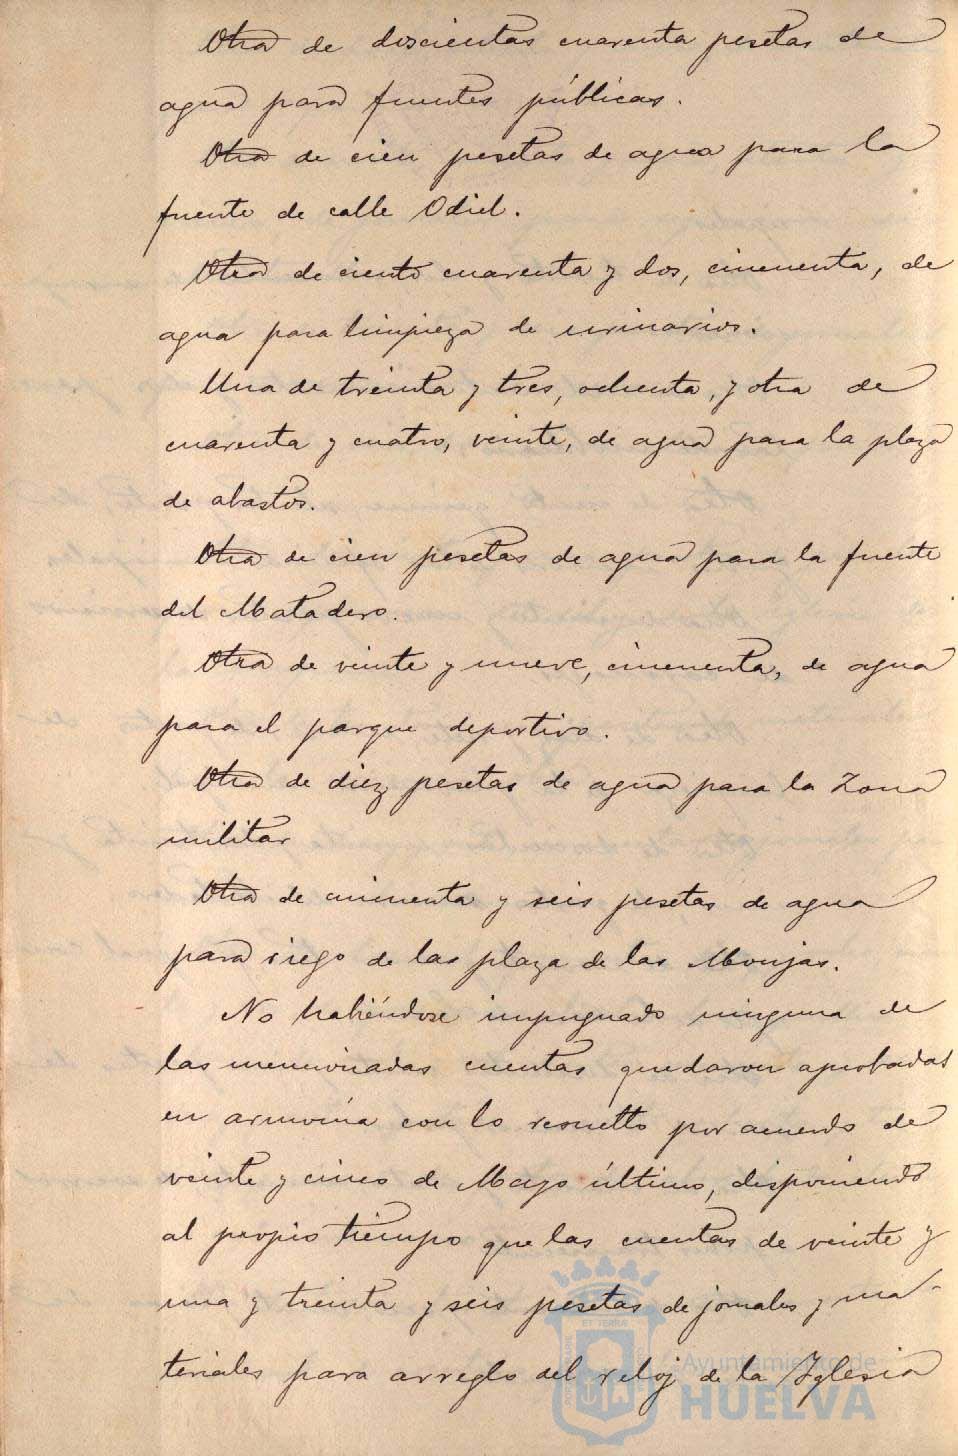 Otra de doscientas cuarenta pesetas de
agua para fuentes públicas.
Otra de cien pesetas de agua para la
fuente de calle Odiel.
Otra de ciento cuarenta y dos, cincuenta, de
agua para limpieza de urinarios.
Una de treinta y tres, ochenta, y otra de
cuarenta y cuatro, veinte, de agua para la plaza
de abastos.
Otra de cien pesetas de agua para la fuente
del Matadero.
Otra de veinte y nueve, cincuenta, de agua
para el parque deportivo.
Otra de diez pesetas de agua para la Zona
militar
Otra de cincuenta y seis pesetas de agua
para riego de las plaza de las Monjas.
No habiéndose impugnado ninguna de
las mencionadas cuentas quedaron aprobadas
en armonía con lo resuelto por acuerdo de
veinte y cinco de Mayo último, disponiendo
al propio tiempo que las cuentas de veinte y
una y treinta y seis pesetas de jornales y ma-
teriales para arreglo del reloj de la Iglesia
Ayuntamiento de
HUELVA